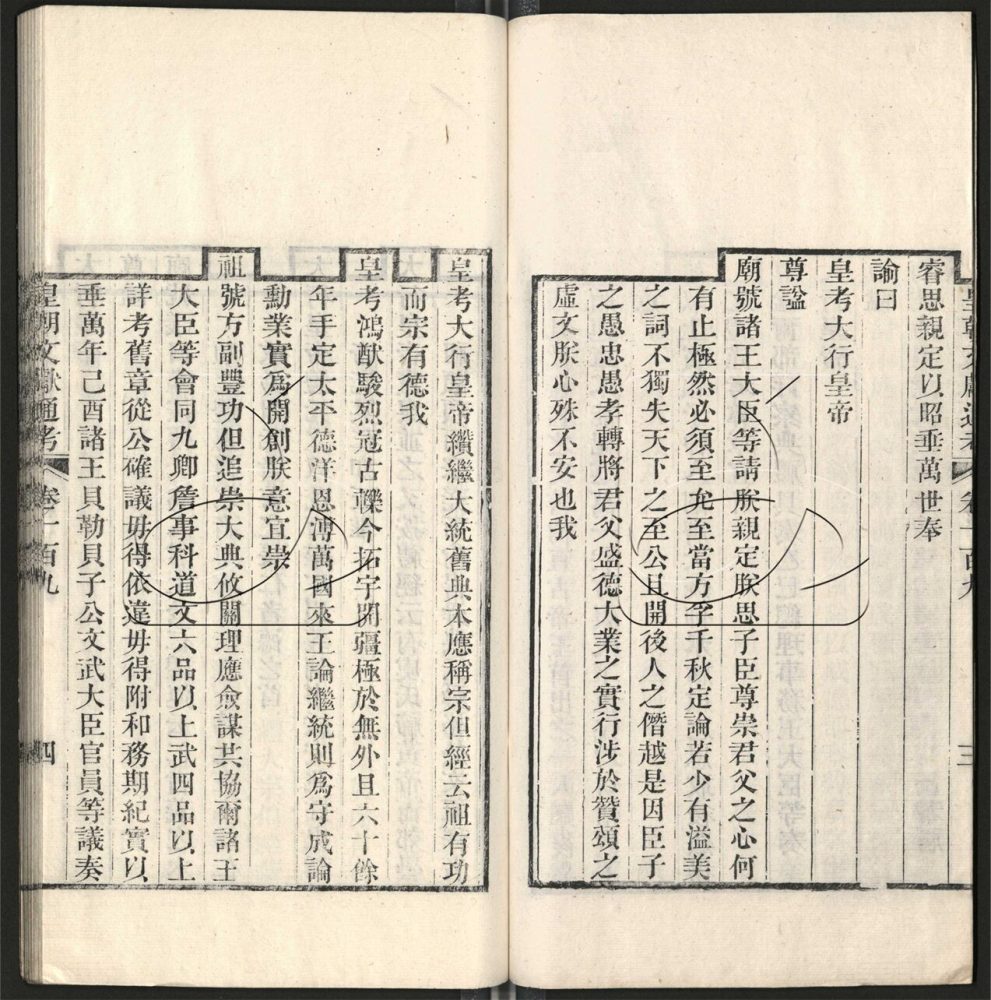 皇朝文獻通考 卷一百九 三
睿思親定以昭垂萬世奉
諭曰
皇考大行皇帝
尊諡
廟號諸王大臣等請朕親定朕思子臣尊崇君父之心何
有止極然必須至允至當方孚千秋定論若少有溢美
之詞不獨失天下之至公且開後人之僭越是因臣子
之愚忠愚孝轉將君父盛德大業之實行涉於贊頌之
虛文朕心殊不安也我
皇考大行皇帝纘繼大統舊典本應稱宗但經云祖有功
而宗有德我
皇考鴻猷駿烈冠古轢今拓宇開疆極於無外且六十餘
年手定太平德洋恩溥萬國來王論繼統則爲守成論
勳業實爲開創朕意宜崇
祖號方副豐功但追崇大典攸關理應僉謀共協爾諸王
大臣等會同九卿詹事科道文六品以上武四品以上
詳考舊章從公確議毋得依違毋得附和務期紀實以
垂萬年己酉諸王貝勒貝子公文武大臣官員等議奏
皇朝文獻通考 卷一百九 四